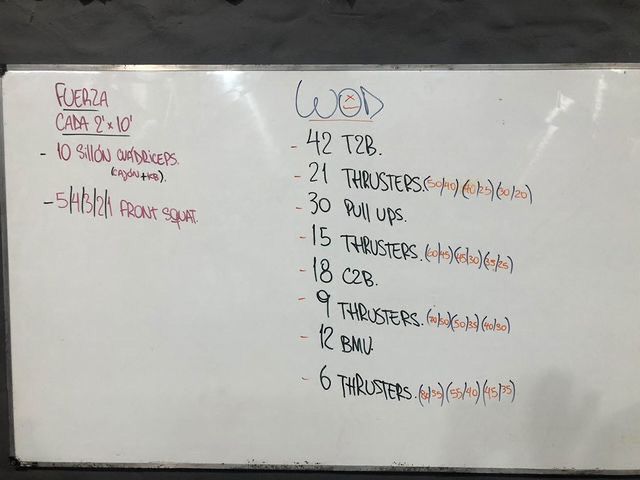 FUERZA
CADA 2' x 10'
- 10 SILLÓN CUÁDRICEPS.
(CAJÓN + KB)
- 5/4/3/2/1 FRONT SQUAT.
WOD
- 42 T2B.
- 21 THRUSTERS. (50/40) (40/25) (30/20)
- 30 PULL UPS.
- 15 THRUSTERS. (60/45) (45/30) (35/25)
- 18 C2B.
- 9 THRUSTERS. (70/50) (50/35) (40/30)
- 12 BMU.
- 6 THRUSTERS. (80/55) (55/40) (45/35)